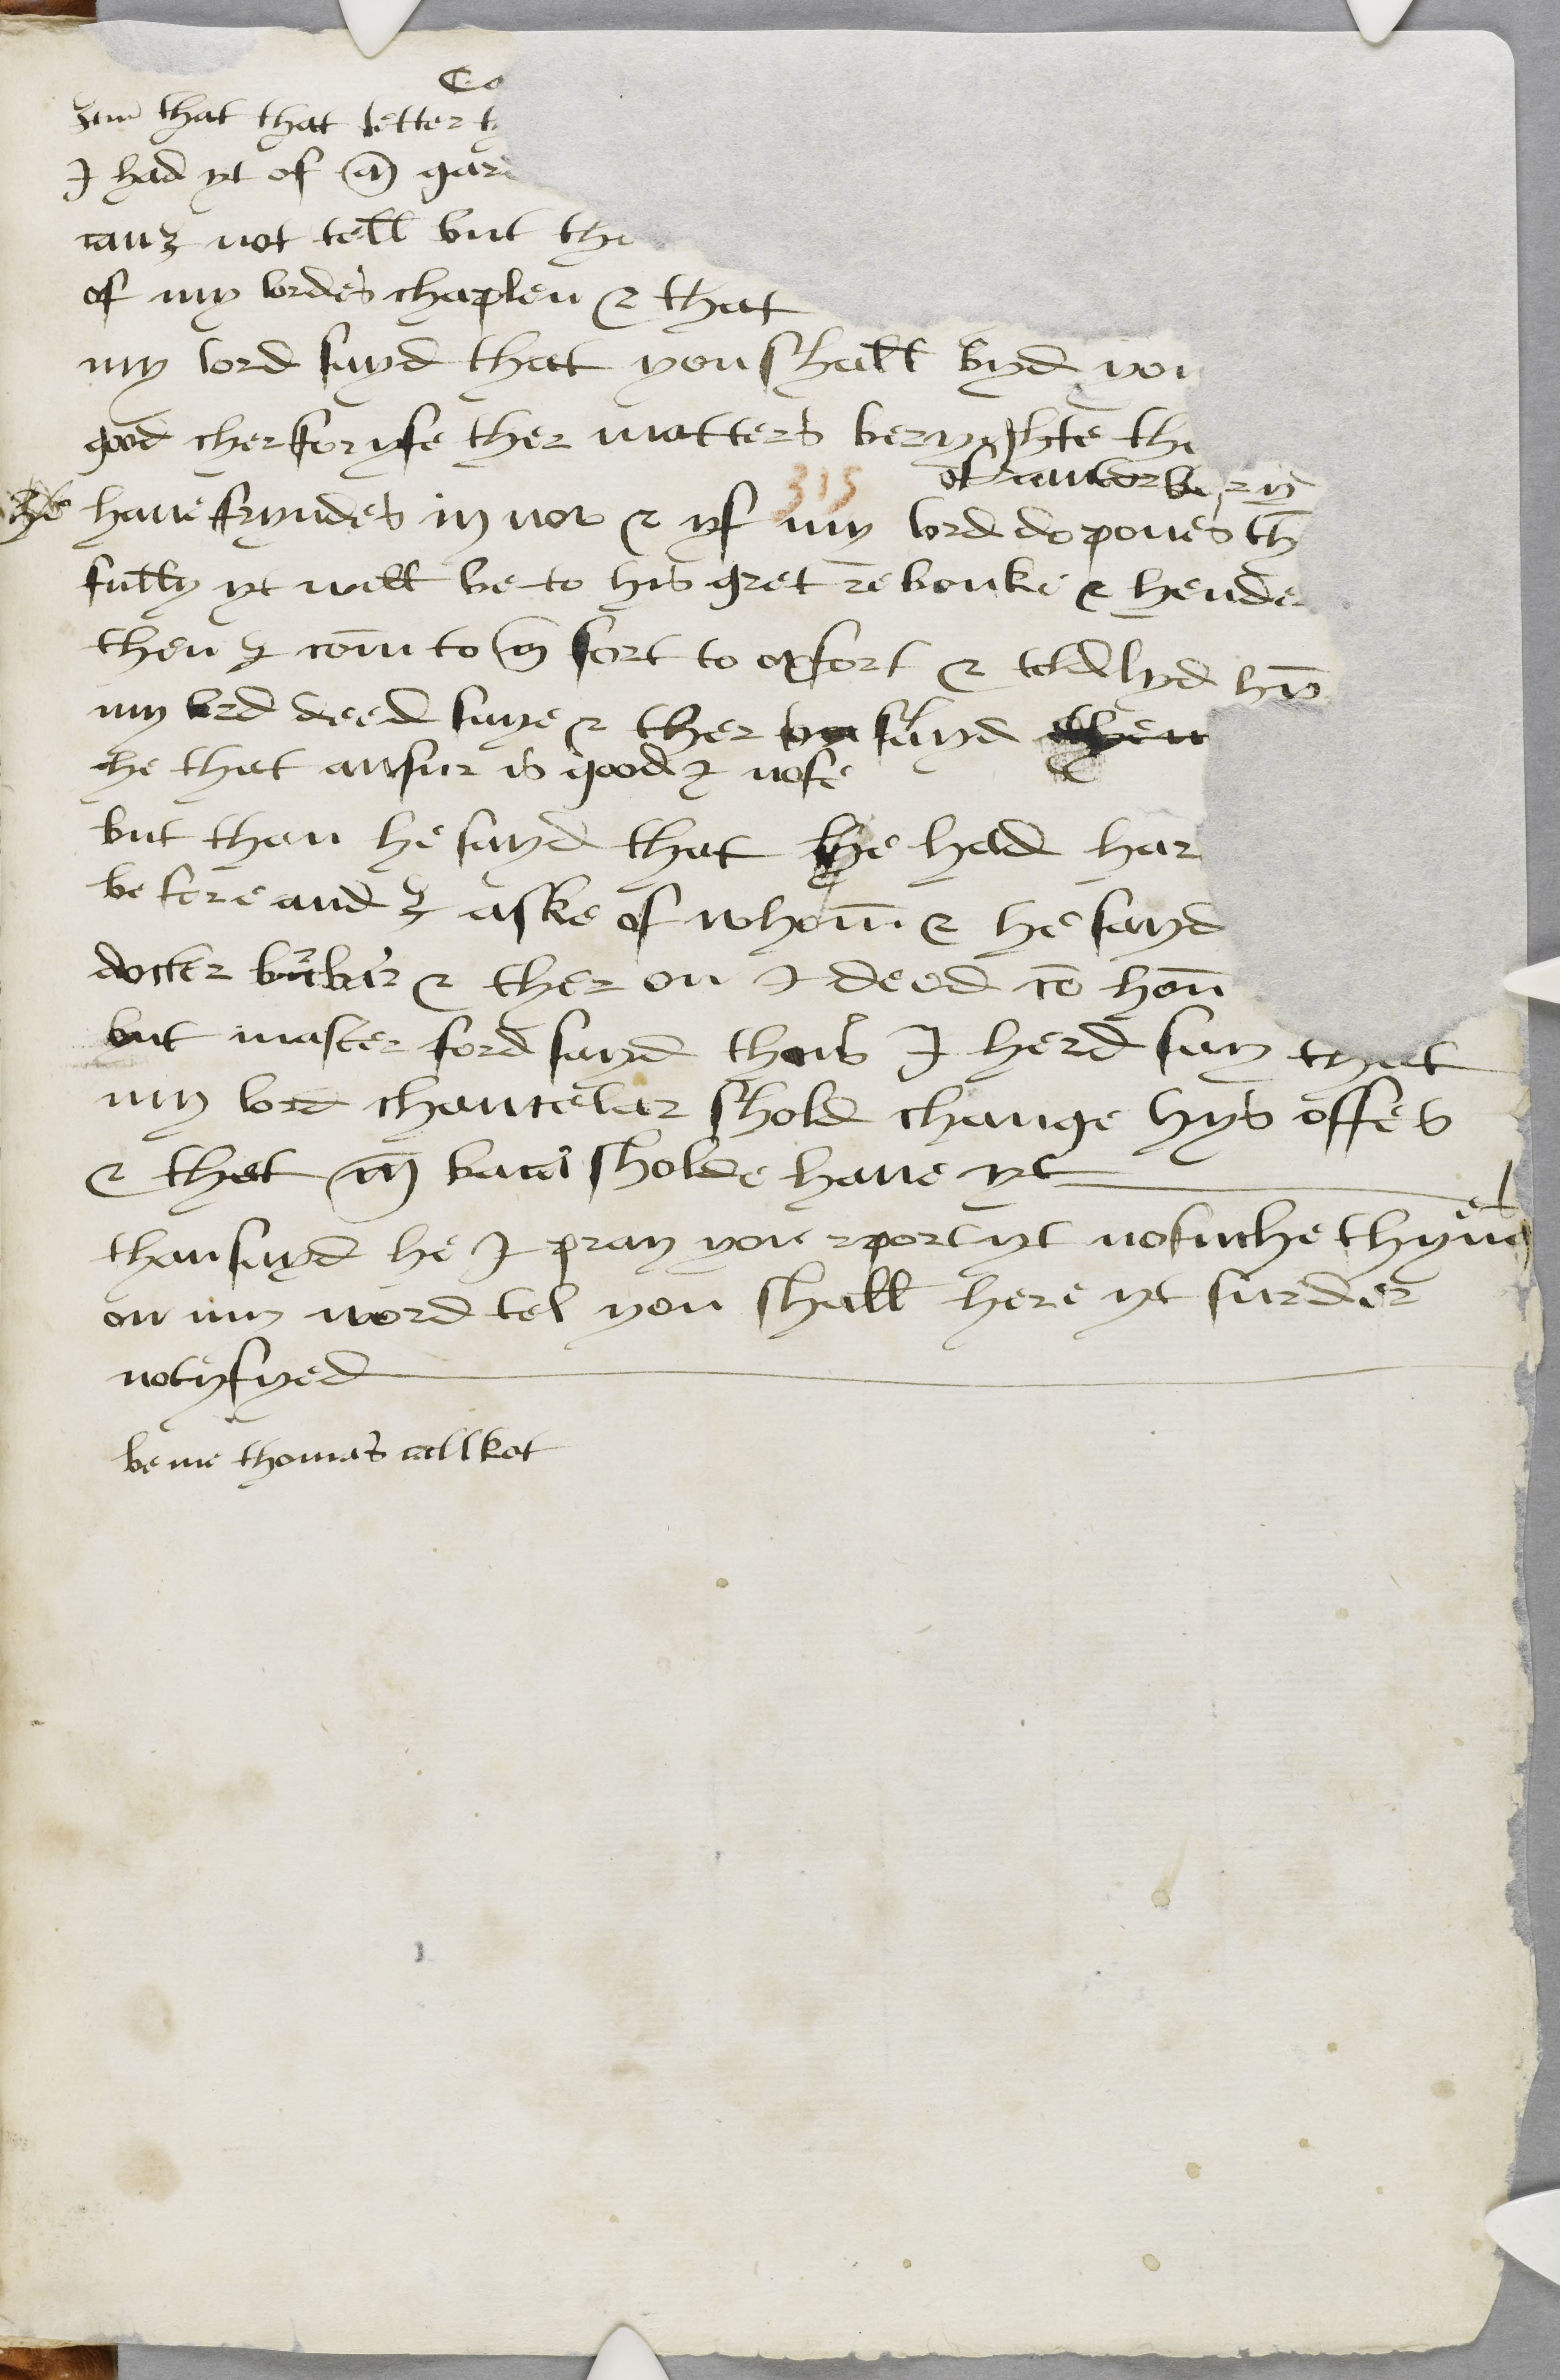 Co
Itm that that letter t
I had yt of m gar
can I not tell but the
of my lordes chaplen & that
my lord sayd that you shall byd you
good cher for yfe ther matters be ryghte the
of cantorbery
the have fryndes in now & yf my lord do poues th
fully yt well be to his gret rebouke & hender
then I com to m fort to oxfort & told hym
my lord deed saye & ther sayd then
he that ansur is good I nose
but than he sayd that he had har
before and I aske of whom & he sayd
docter & ther on I deed co hom
but master ford sayd thus I herd say that
my lord chanceler shold change hys offes
& that m holde have yt
than sayd he I pray you report yt no suche thyng
on my word tel you shall here yt furder
notyfyed
be me thomas callkot
315